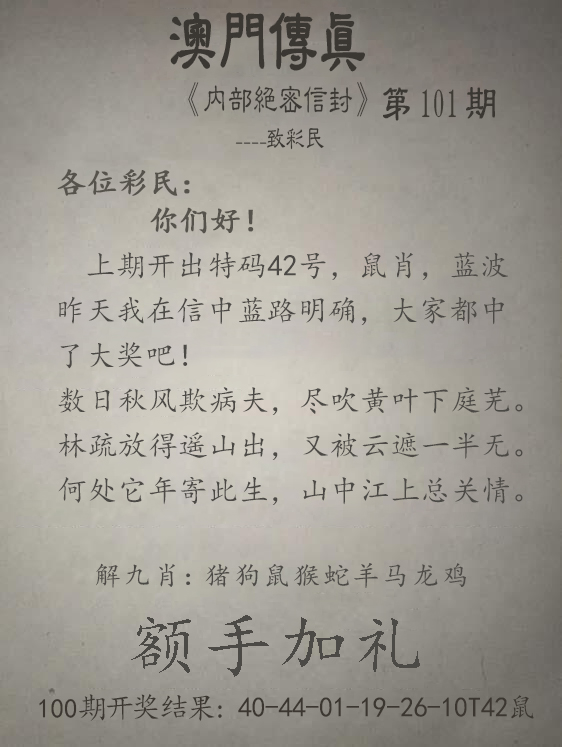 澳門傳真
《内部絕密信封》第101期
----致彩民
各位彩民：
你们好！
上期开出特码42号，鼠肖，蓝波
昨天我在信中蓝路明确，大家都中
了大奖吧！
数日秋风欺病夫，尽吹黄叶下庭芜。
林疏放得遥山出，又被云遮一半无。
何处它年寄此生，山中江上总关情。
解九肖：猪狗鼠猴蛇羊马龙鸡
额手加礼
100期开奖结果：40-44-01-19-26-10T42鼠